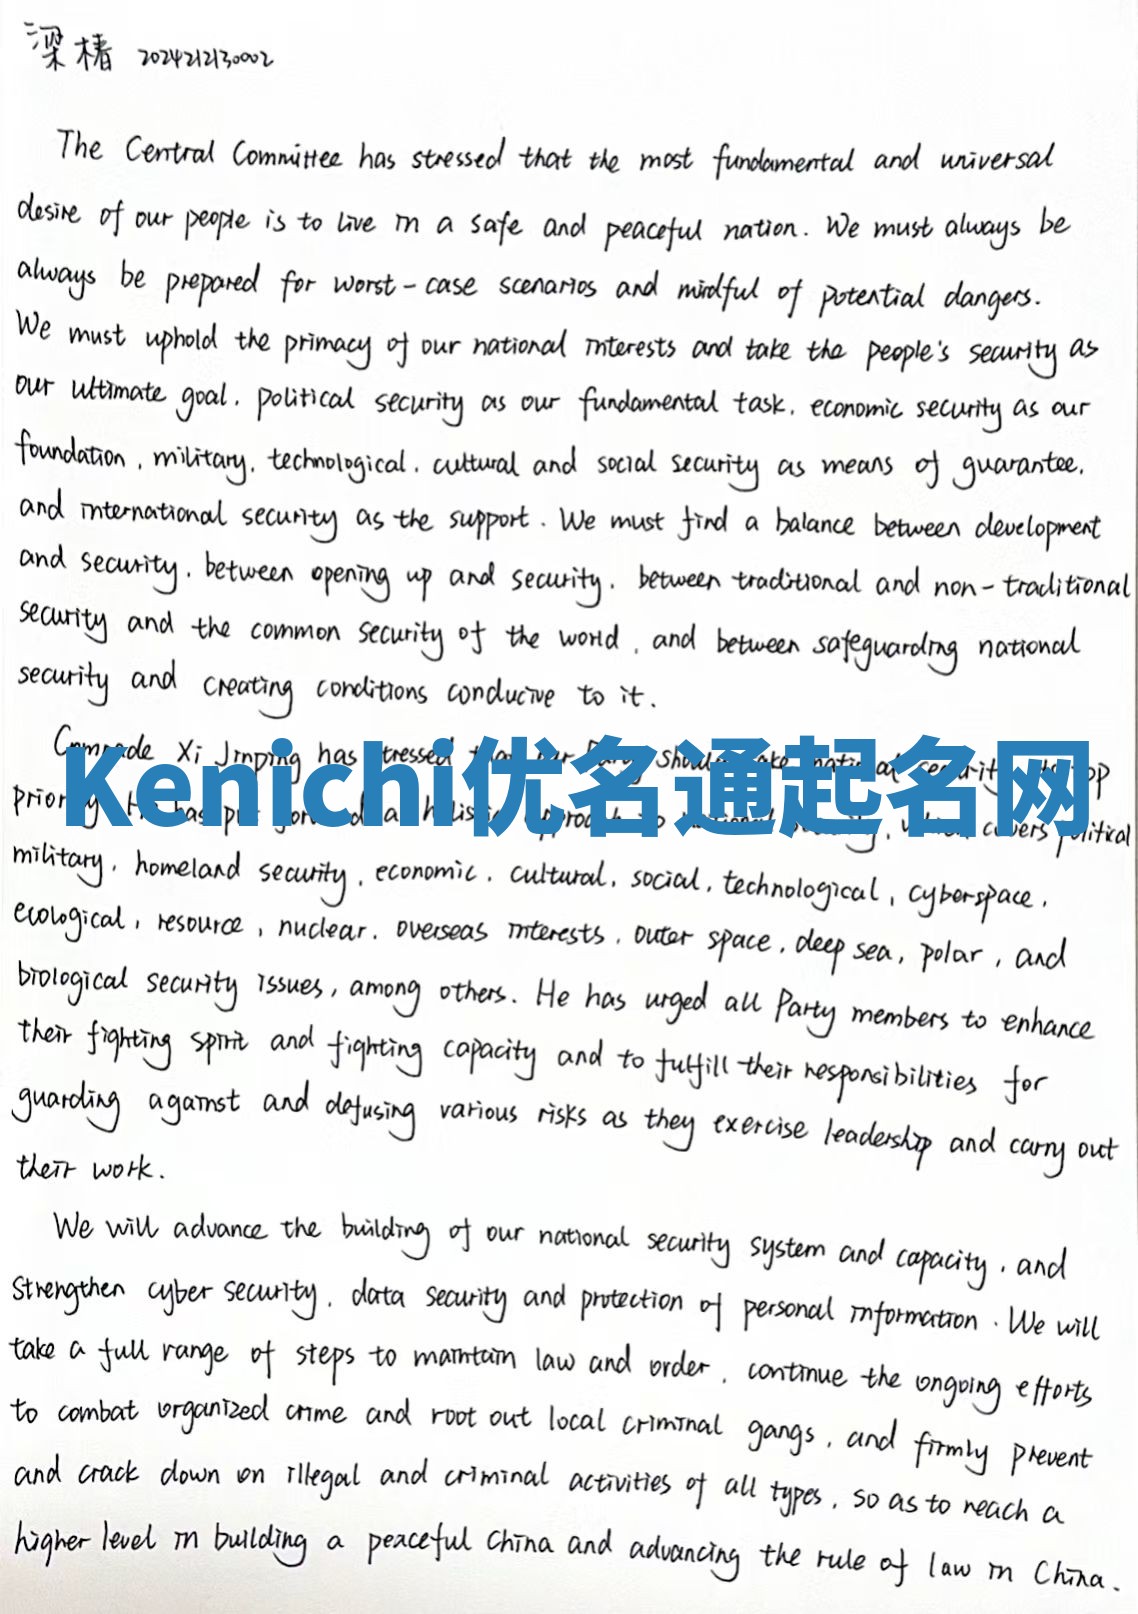 梁椿 2024212130002
The Central Committee has stressed that the most fundamental and universal
desire of our people is to live in a safe and peaceful nation. We must always be
always be prepared for worst-case scenarios and mindful of potential dangers.
We must uphold the primacy of our national interests and take the people's security as
our ultimate goal, political security as our fundamental task, economic security as our
foundation, military, technological, cultural and social security as means of guarantee,
and international security as the support. We must find a balance between development
and security, between opening up and security, between traditional and non-traditional
security and the common security of the world, and between safeguarding national
security and creating conditions conducive to it.
Comrade Xi Jinping has stressed should national security top
Kenichi优名通起名网
priority has covers political
military, homeland security, economic, cultural, social, technological, cyberspace,
ecological, resource, nuclear, overseas interests, outer space, deep sea, polar, and
biological security issues, among others. He has urged all Party members to enhance
their fighting spirit and fighting capacity and to fulfill their responsibilities for
guarding against and defusing various risks as they exercise leadership and carry out
their work.
We will advance the building of our national security system and capacity, and
strengthen cyber security, data security and protection of personal information. We will
take a full range of steps to maintain law and order, continue the ongoing efforts
to combat organized crime and root out local criminal gangs, and firmly prevent
and crack down on illegal and criminal activities of all types, so as to reach a
higher level in building a peaceful China and advancing the rule of law in China.